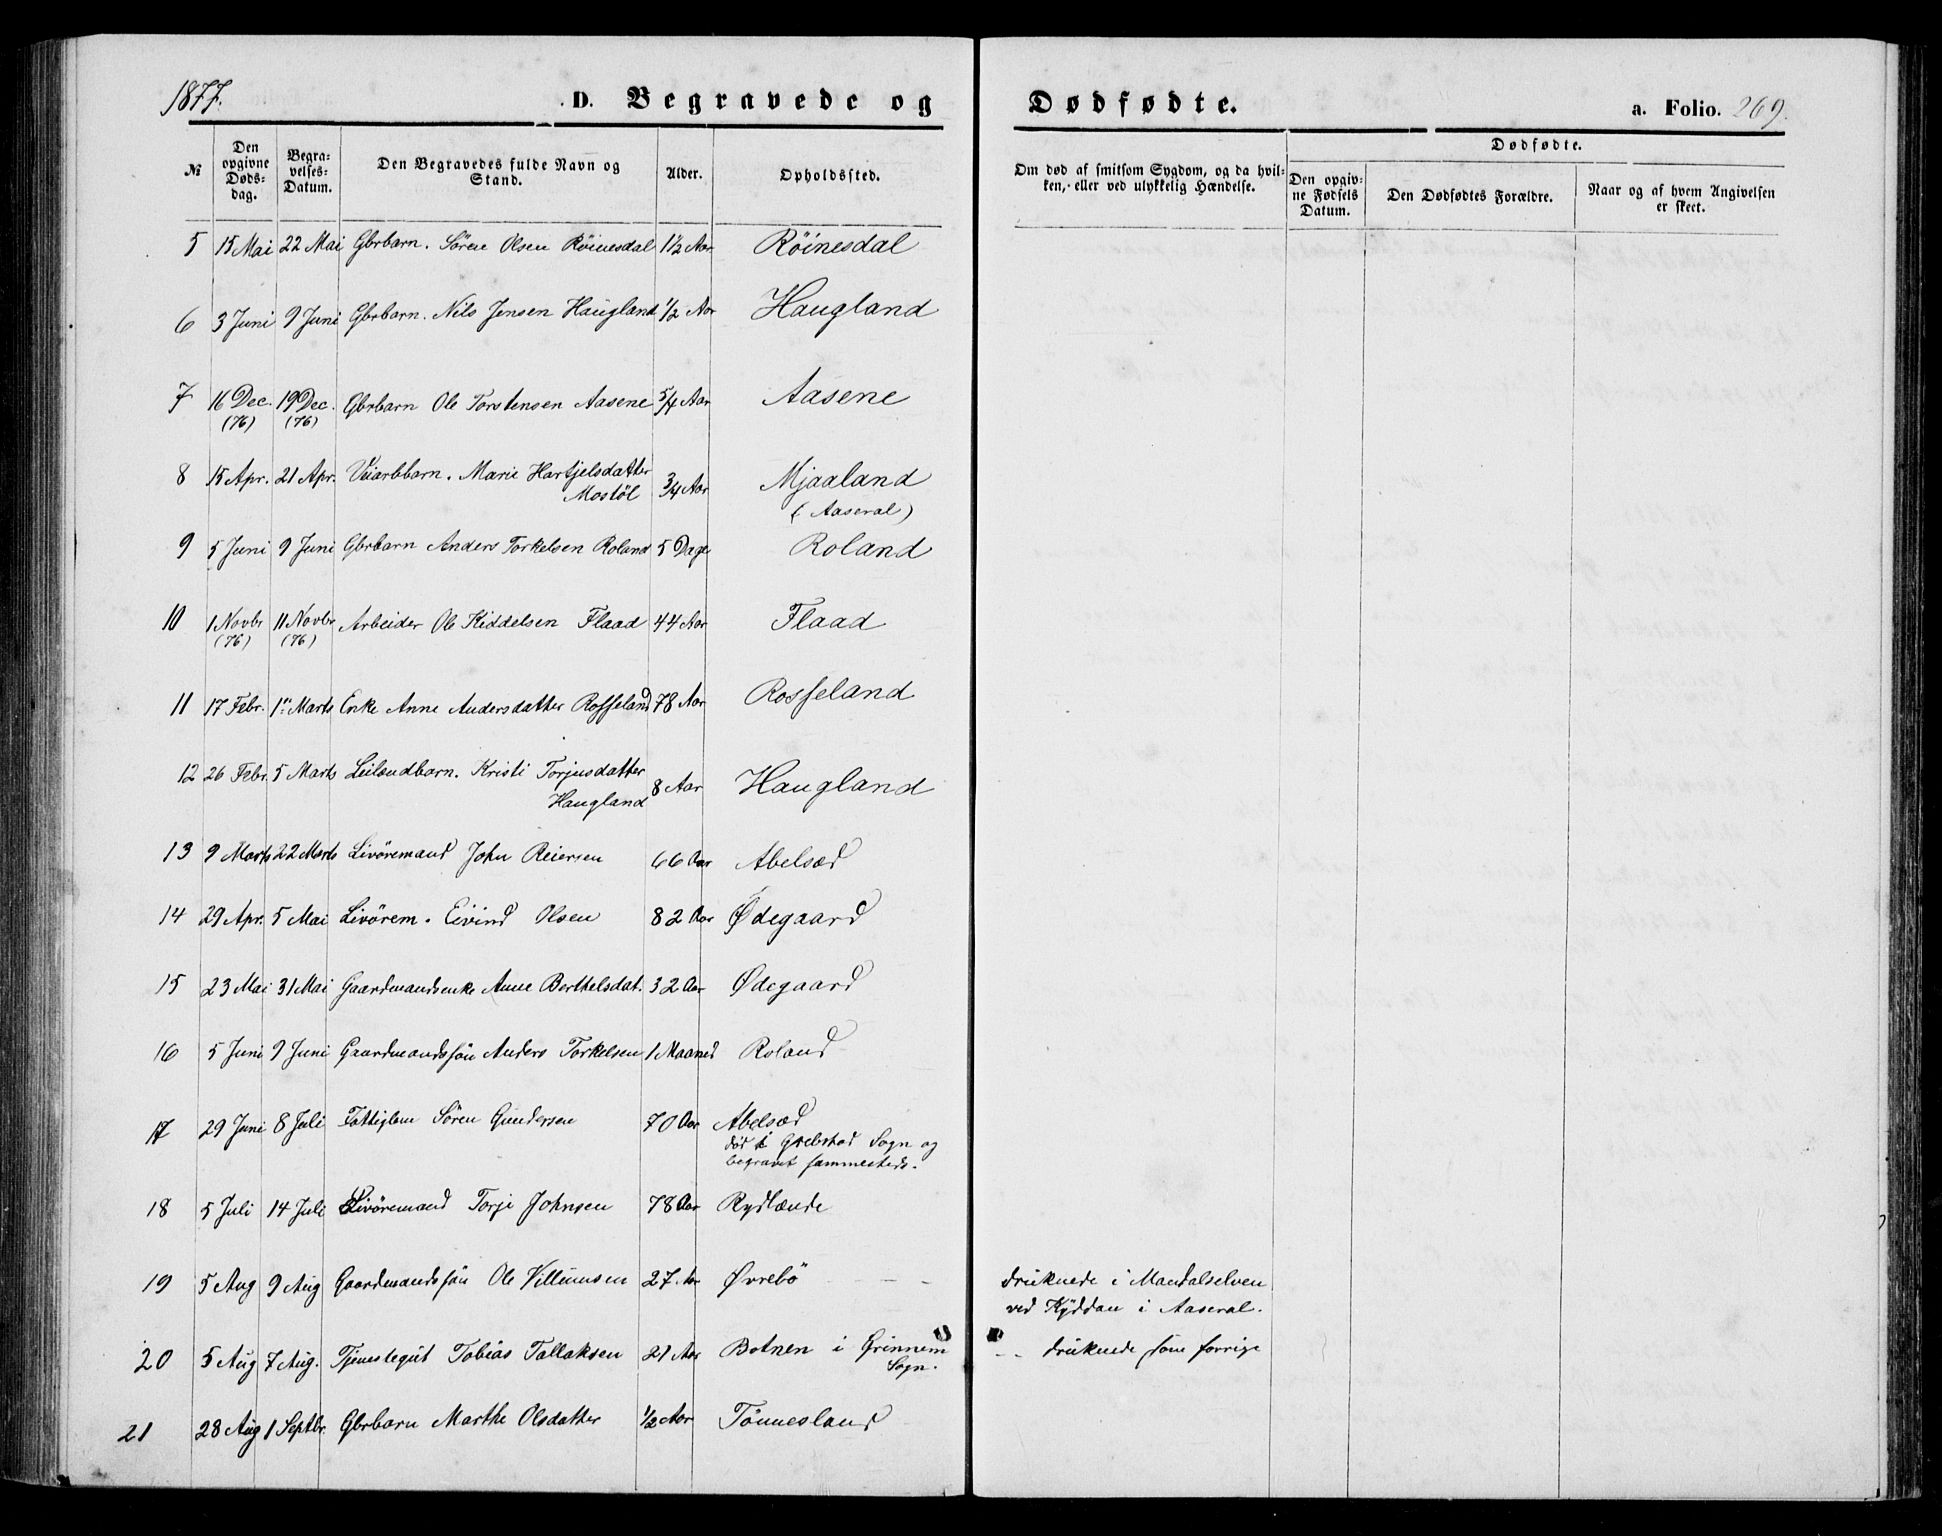 1877.
D. Begravede og Dødfødte. a. Folio. 269.
№ Den opgivne Døds-dag. Begra-velses-Datum. Den Begravedes fulde Navn og Stand. Alder. Opholdssted. Om død af smitsom Sygdom, og da hvil-ken, eller ved ulykkelig Hændelse. Dødfødte. Den opgiv-ne Fødsels Datum. Den Dødfødtes Forældre. Naar og af hvem Angivelsen er skeet.
5 15 Mai 22 Mai Gbrbarn. Sören Olsen Röinesdal 1½ Aar Röinesdal
6 3 Juni 9 Juni Gbrbarn. Nils Jensen Haugland ½ Aar Haugland
7 16 Dec. (76) 19 Dec. (76) Gbrbarn Ole Torstensen Aasene 5/4 Aar Aasene
8 15 Apr. 21 Apr. Veiarbbarn. Marie Hartjelsdatter Mostöl ¾ Aar Mjaaland
(Aaseral)
9 5 Juni 9 Juni Gbrbarn Anders Torkelsen Roland 5 Dage Roland
10 1 Novbr (76) 11 Novbr (76) Arbeider Ole Kiddelsen Flaad 44 Aar Flaad
11 17 Febr. 1ste Marts Enke Anne Andersdatter Rosseland 78 Aar Rosseland
12 26 Febr. 5 Marts Leilændbarn. Kristi Torjusdatter Haugland 8 Aar Haugland
13 9 Marts 22 Marts Livöremand John Reiersen 66 Aar Abelsæd
14 29 Apr. 5 Mai Livörem. Eivind Olsen 82 Aar Ødegaard
15 23 Mai 31 Mai Gaardmandsenke Anne Berthelsdat. 32 Aar Ødegaard
16 5 Juni 9 Juni Gaardmandssön Anders Torkelsen 1 Maaned Roland
17 29 Juni 8 Juli Fattiglem Sören Gundersen 70 Aar Abelsæd
död i Grebstad Sogn og
begravet sammesteds.
18 5 Juli 14 Juli Livöremand Torje Johnsen 78 Aar Rydlænde
19 5 Aug 9 Aug Gaardmandssön Ole Villumsen 27 Aar Øvrebö - - druknede i Mandalselven
ved Kÿddan i Aaseral.
20 5 Aug 7 Aug. Tjenestegut Tobias Tallaksen 21 Aar Botnen i Grinnem Sogn. - - druknede som forrige
21 28 Aug 1 Septbr. Gbrbarn Marthe Olsdatter ½ Aar Tönnesland